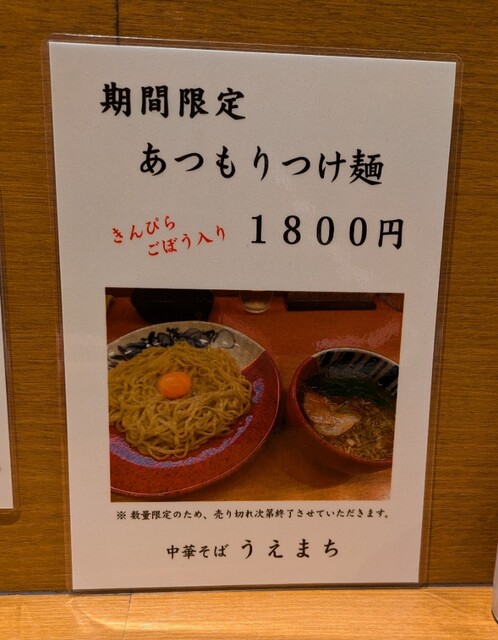 期間限定
あつもりつけ麺
きんぴら
ごぼう入り
1800円
※ 数量限定のため、売り切れ次第終了させていただきます。
中華そば うえまち